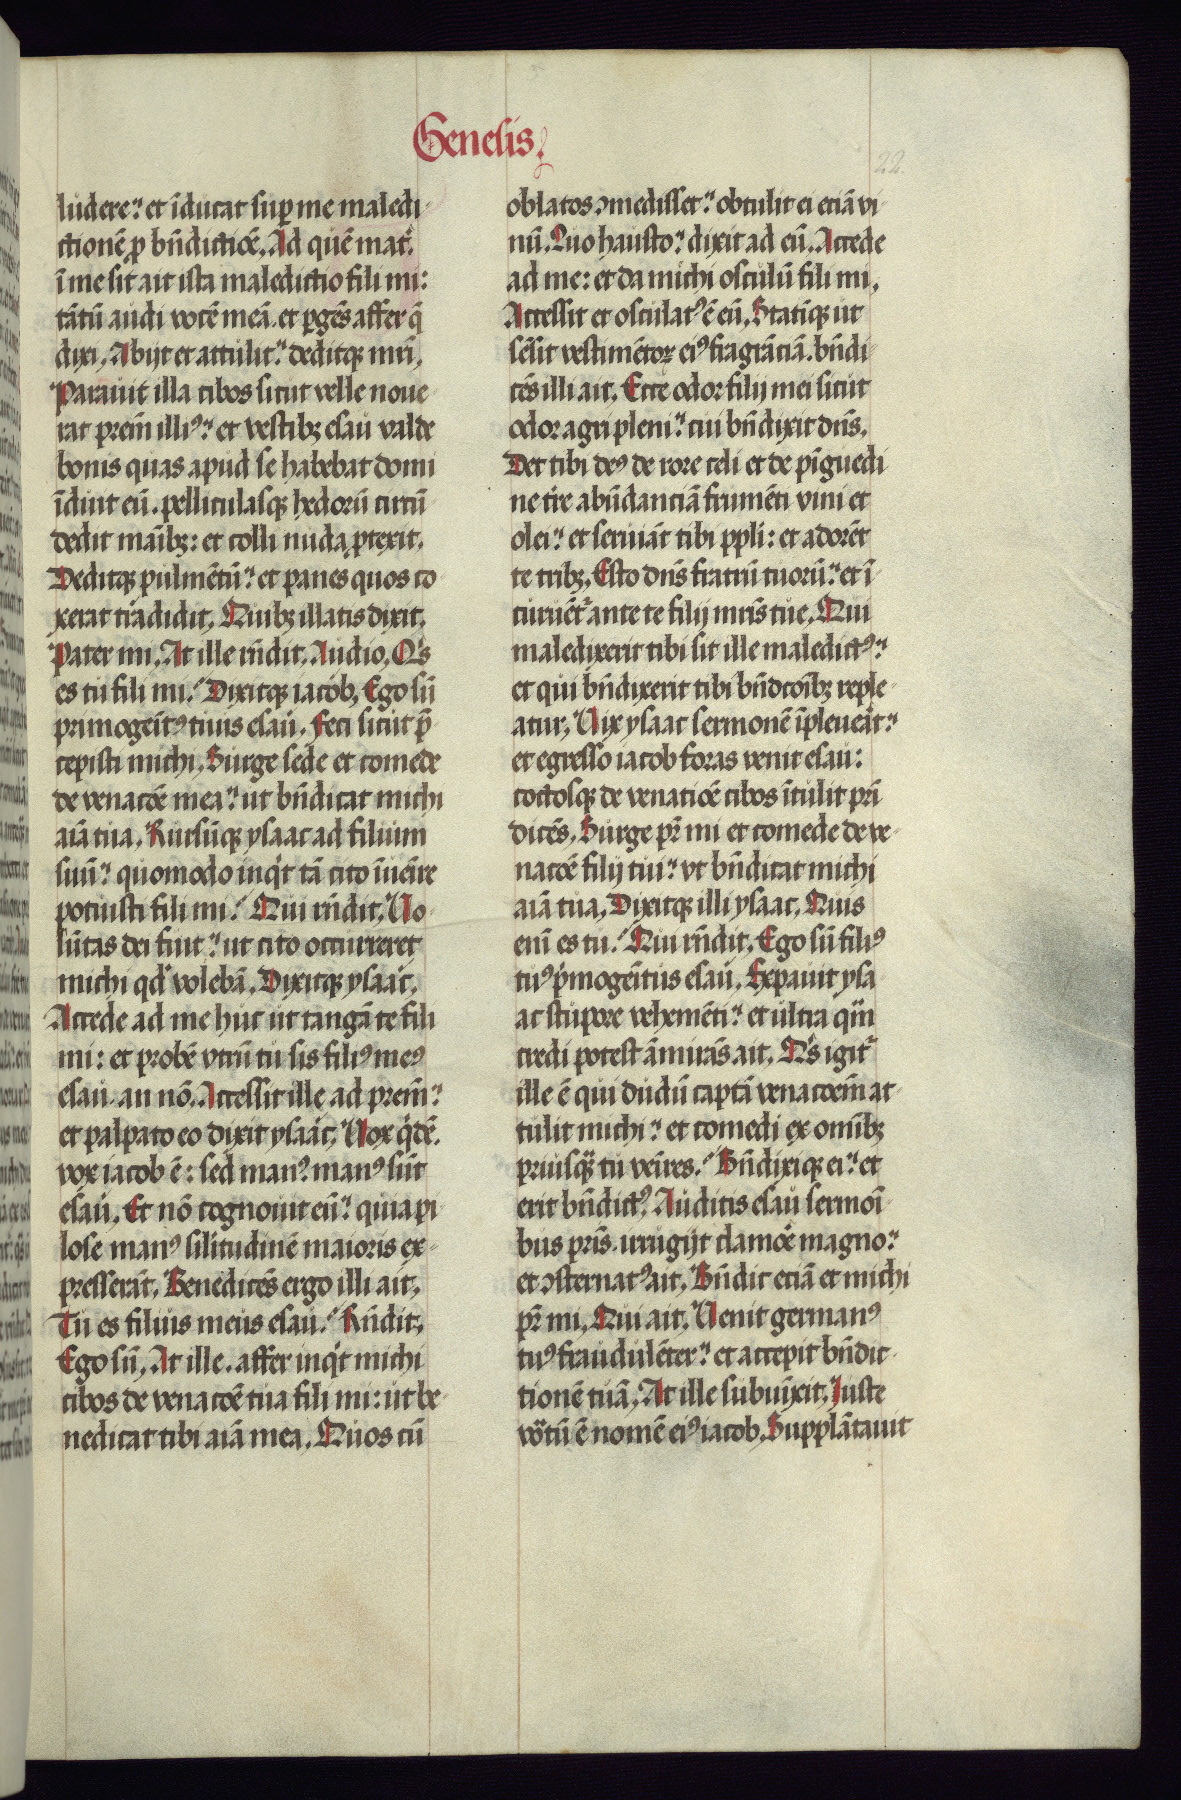 Genesis.
22
ludere? et īducat sup me maledi-
ctionē ꝓ bn̄dictiōe. Ad quē mat̄.
ī me sit ait ista maledictio fili mi:
tātū audi vocē meā. et ꝑgēs affer q̄
dixi. Abijt et attulit? deditqꝫ mr̄i.
Parauit illa cibos sicut velle noue
rat prem̄ illiꝰ? et vestibꝫ esau valde
bonis quas apud se habebat domi
īduit eū. pelliculasqꝫ hedorū circū
dedit manibꝫ: et colli nuda ꝓtexit.
Deditqꝫ pulmētū? et panes quos co
xerat tradidit. Quibꝫ illatis dixit.
Pater mi. At ille rn̄dit. Audio. Qͥs
es tu fili mi? Dixitqꝫ iacob. Ego sū
primogeitꝰ tuus esau. Feci sicut p̄
cepisti michi. Surge sede et comede
de venacōe mea? ut bn̄dicat michi
aīa tua. Rursūqꝫ ysaac ad filium
suū? quomodo inqͥt tā cito īuēire
potuisti fili mi? Qui rn̄dit. Uo-
lūtas dei fuit? ut cito occurreret
michi qd̓ volebā. Dixitqꝫ ysaac.
Accede ad me huc ut tangā te fili
mi: et probē vtrū tu sis filiꝰ meꝰ
esau an nō. Accessit ille ad prem̄?
et palpato eo dixit ysaac. Uox qͥdē.
vox iacob ē: sed manꝰ manꝰ sūt
esau. Et nō cognouit eū? quia pi
lose manꝰ silitudinē maioris ex-
presserāt. Benedicēs ergo illi ait.
Tu es filius meus esau? Rn̄dit.
Ego sū. At ille. affer inqͥt michi
cibos de venacōe tua fili mi: ut be-
nedicat tibi aīa mea. Quos cū
oblatos ꝯmedisset? obtulit ei eciā vi-
nū. Quo hausto? dixit ad eū. Accede
ad me: et da michi osculū fili mi.
Accessit et osculatꝰ ē eū. Statīqꝫ ut
sēsit vestimētoꝝ eiꝰ fragrāciā. bn̄di-
cēs illi ait. Ecce odor filij mei sicut
odor agri pleni? cui bn̄dixit dn̄s.
Det tibi deꝰ de rore celi et de pīguedi
ne tre abūdanciā frumēti vini et
olei? et seruiāt tibi ppli: et adorēt
te tribꝫ. Esto dn̄s fratrū tuorū? et ī
curuēt᷑ ante te filij mr̄is tue. Qui
maledixerit tibi sit ille maledictꝰ?
et qui bn̄dixerit tibi bn̄dcōibꝫ reple-
atur. Uix ysaac sermonē īpleueāt?
et egresso iacob foras venit esau:
coctosqꝫ de venatiōe cibos ītulit pr̄i
dicēs. Surge pr̄ mi et comede de ve-
nacōe filij tui? vt bn̄dicat michi
aīa tua. Dixitqꝫ illi ysaac. Quis
enī es tu? Qui rn̄dit. Ego sū filiꝰ
tuꝰ pͥmogeītus esau. Expauit ysa
ac stupore vehemēti? et ultra qͣm
credi potest āmirās ait. Qͥs igit᷑
ille ē qui dudū captā venacōem at-
tulit michi? et comedi ex omībꝫ
priusqͣꝫ tu veīres? Bn̄dixiqꝫ ei? et
erit bn̄dictꝰ. Auditis esau sermoī
bus pr̄is. irrugijt clamōe magno?
et ꝯsternatꝰ ait. Bn̄dic eciā et michi
pr̄ mi. Qui ait. Uenit germanꝰ
tuꝰ fraudulēter? et accepit bn̄dic-
tionē tuā. At ille subiūxit. Juste
vōtū ē nomē eiꝰ iacob. Supplātauit